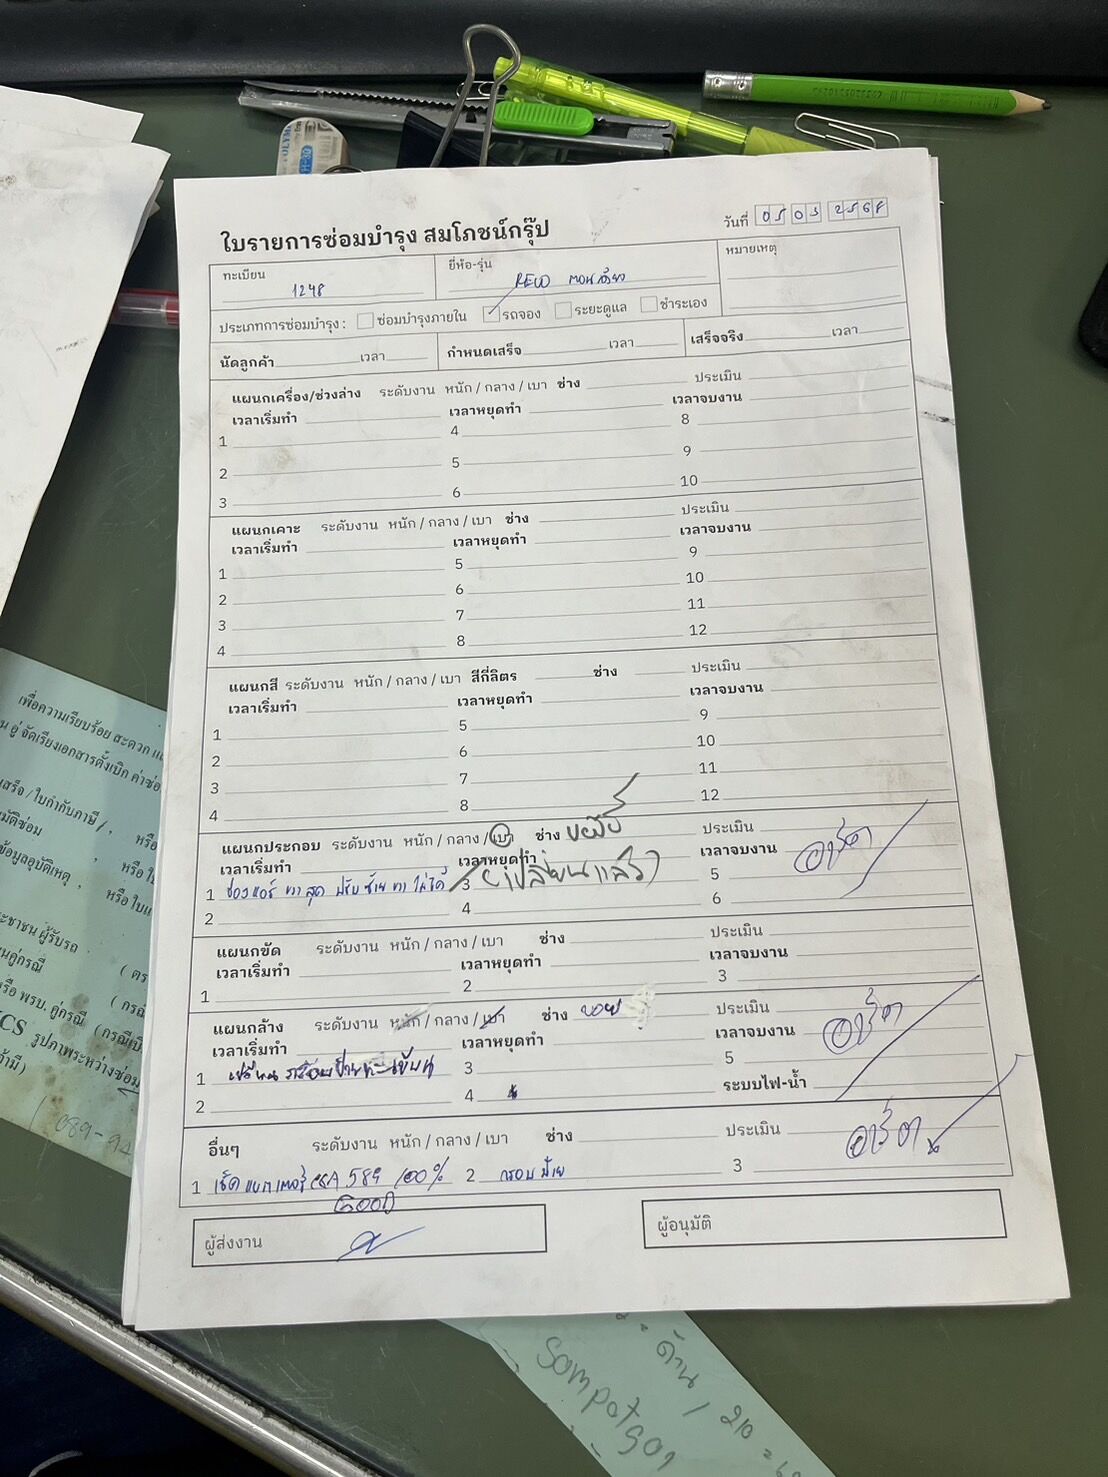 ใบรายการซ่อมบำรุง สมโภชน์กรุ๊ป
วันที่ 05 03 2568
ทะเบียน 1248
ยี่ห้อ-รุ่น REVO ตอนเดียว
หมายเหตุ
ประเภทการซ่อมบำรุง : ซ่อมบำรุงภายใน รถจอง ระยะดูแล ชำระเอง
นัดลูกค้า เวลา กำหนดเสร็จ เวลา เสร็จจริง เวลา
แผนกเครื่อง/ช่วงล่าง ระดับงาน หนัก / กลาง / เบา ช่าง ประเมิน
เวลาเริ่มทำ เวลาหยุดทำ เวลาจบงาน
1 4 8
2 5 9
3 6 10
แผนกเคาะ ระดับงาน หนัก / กลาง / เบา ช่าง ประเมิน
เวลาเริ่มทำ เวลาหยุดทำ เวลาจบงาน
1 5 9
2 6 10
3 7 11
4 8 12
แผนกสี ระดับงาน หนัก / กลาง / เบา สีกี่ลิตร ช่าง ประเมิน
เวลาเริ่มทำ เวลาหยุดทำ เวลาจบงาน
1 5 9
2 6 10
3 7 11
4 8 12
แผนกประกอบ ระดับงาน หนัก / กลาง / เบา ช่าง ประเมิน
เวลาเริ่มทำ เวลาหยุดทำ เวลาจบงาน
1 ช่องแอร์ ขวา สุด ปรับ ซ้าย ขวา ไม่ได้ 3 (เปลี่ยนแล้ว) 5
2 4 6
แผนกขัด ระดับงาน หนัก / กลาง / เบา ช่าง ประเมิน
เวลาเริ่มทำ เวลาหยุดทำ เวลาจบงาน
1 2 3
แผนกล้าง ระดับงาน หนัก / กลาง / เบา ช่าง ประเมิน
เวลาเริ่มทำ เวลาหยุดทำ เวลาจบงาน
1 เปลี่ยน กรอบป้ายทะเบียน 3 5
2 4 ระบบไฟ-น้ำ
อื่นๆ ระดับงาน หนัก / กลาง / เบา ช่าง ประเมิน
1 เช็ค แบตเตอรี่ CCA 589 100% 2 กรอบ ป้าย 3
GOOD
ผู้ส่งงาน
ผู้อนุมัติ
เพื่อความเรียบร้อย สะดวก
อู่ จัดเรียงเอกสารตั้งเบิก ค่าซ่อ
เสร็จ / ใบกำกับภาษี / , หรือ
มัติซ่อม
ข้อมูลอุบัติเหตุ , หรือ ใบ
ระชาชน ผู้รับรถ
นคู่กรณี ( ตร
รือ พรบ. คู่กรณี ( กรณี
CS รูปภาพระหว่างซ่อม
089-94
ด้าน / 210
Sompotgor